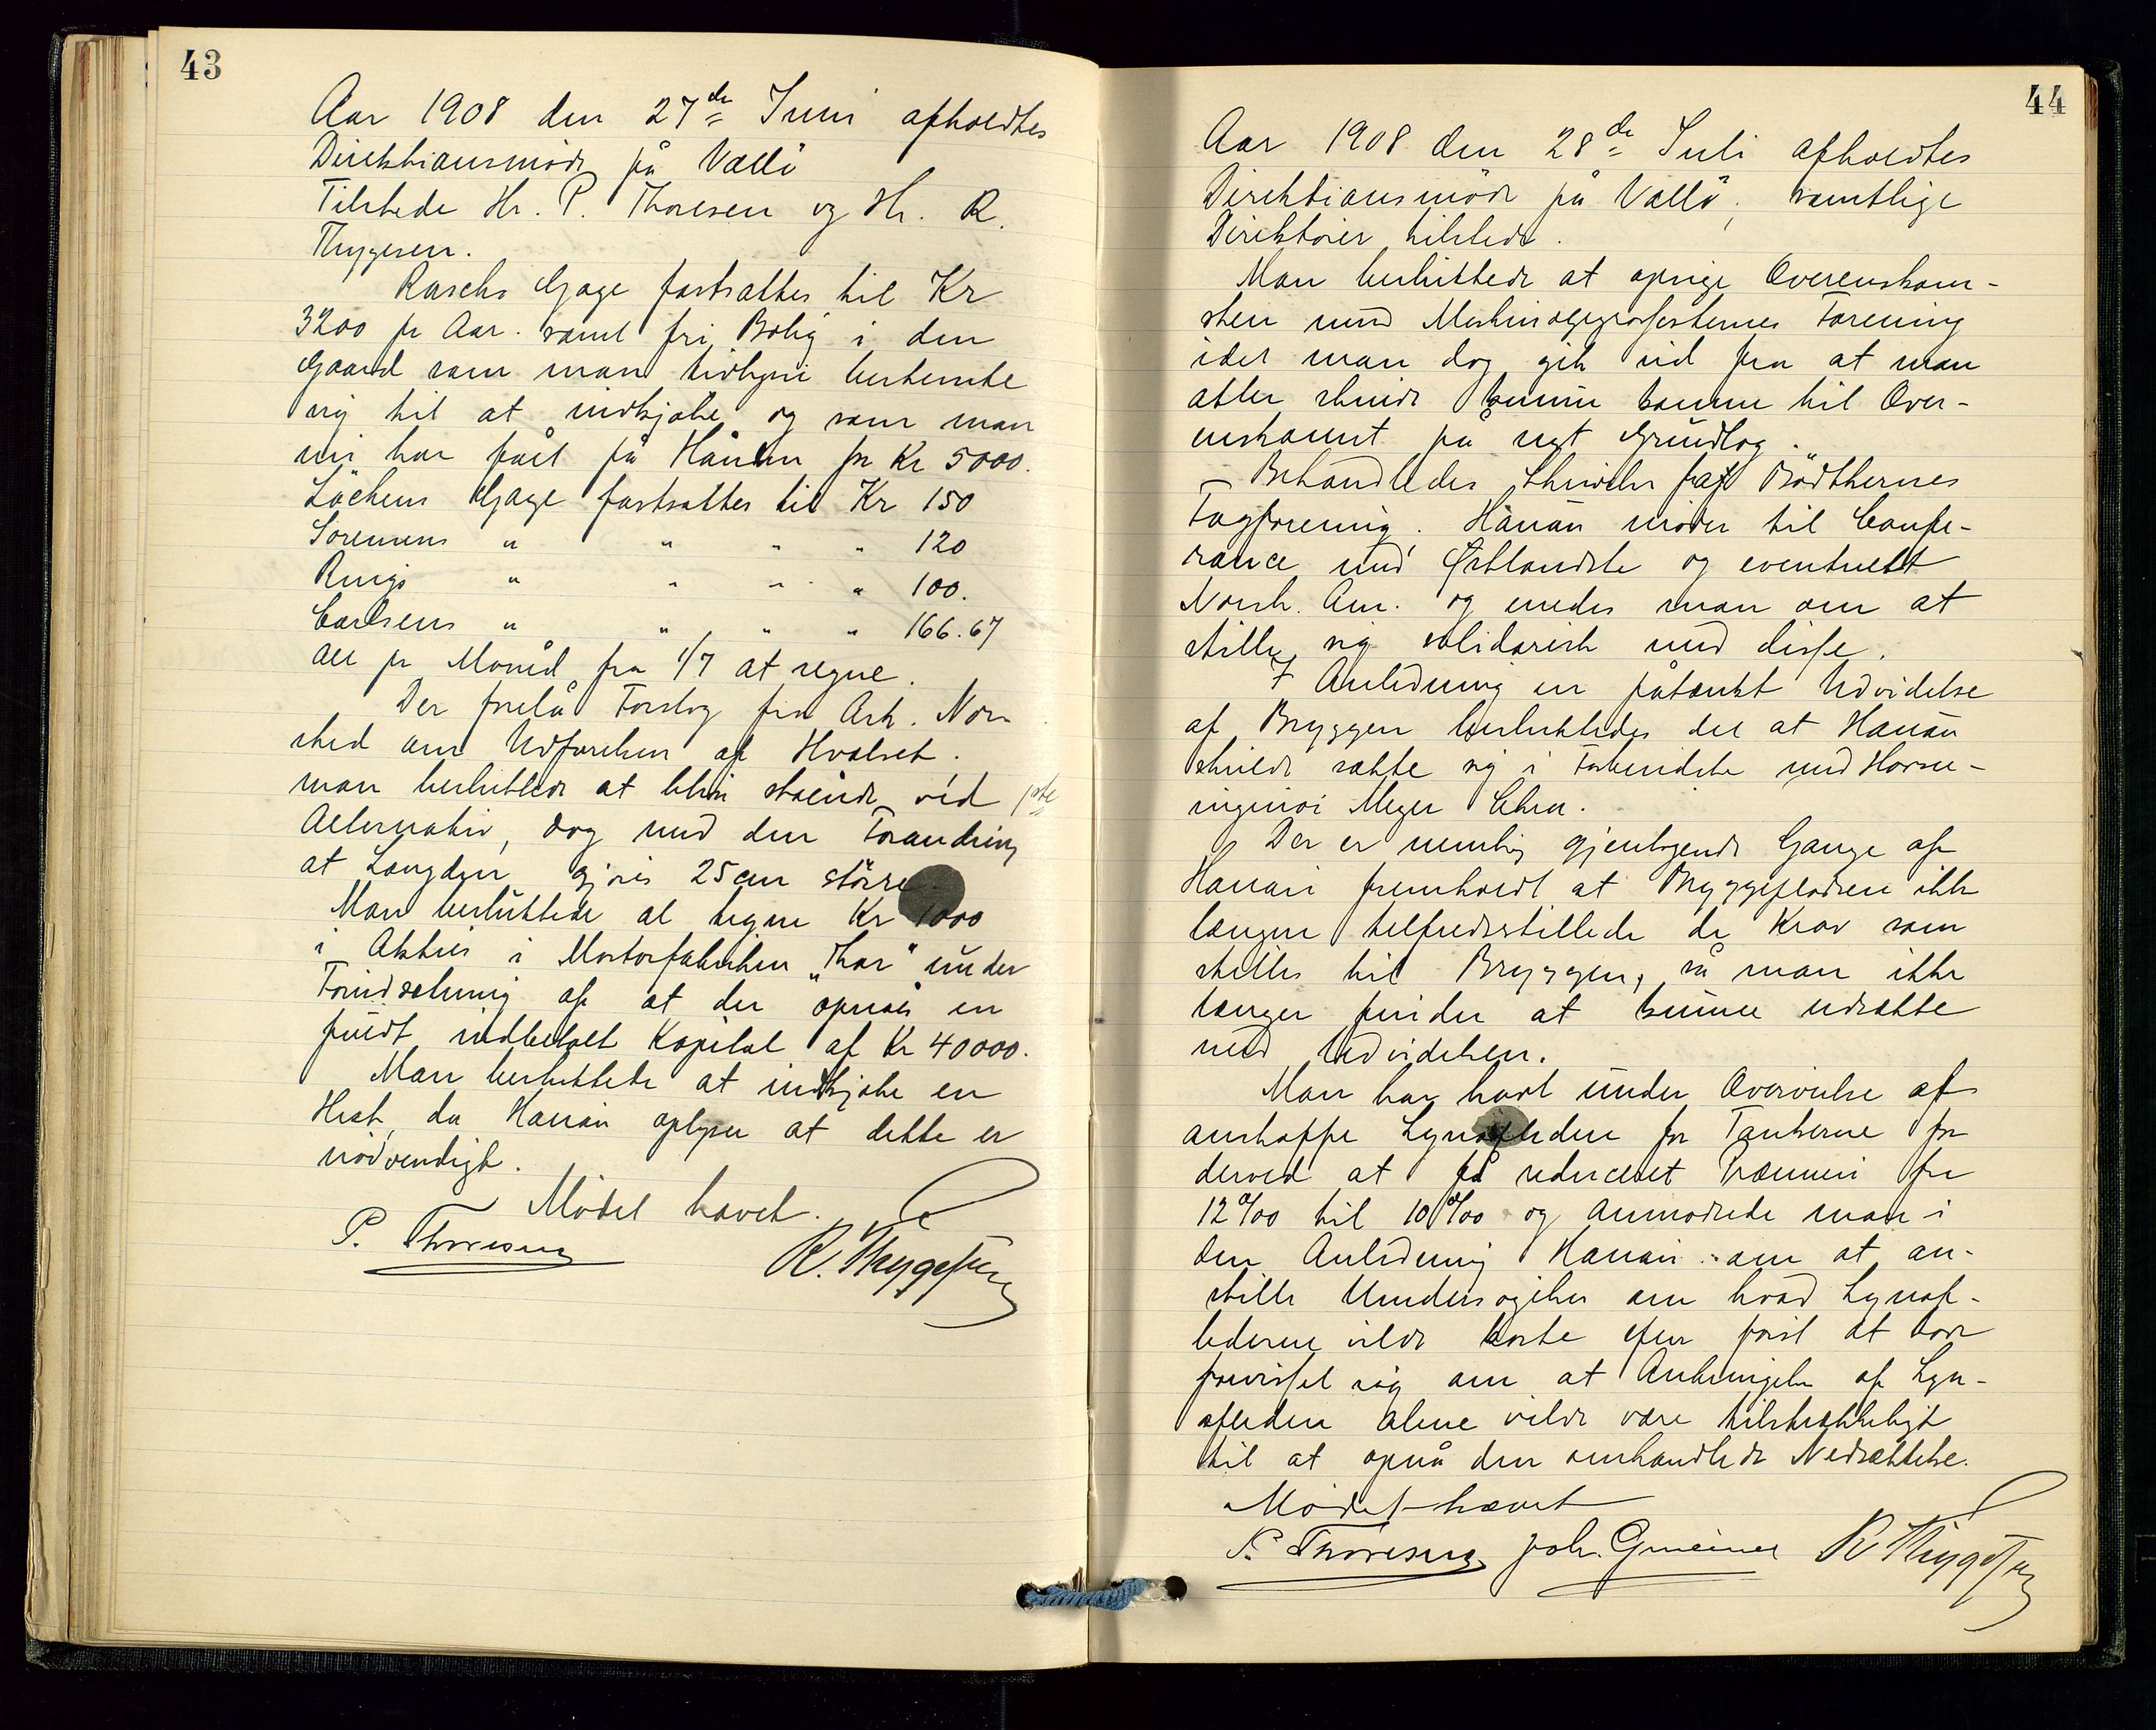 43
Aar 1908 den 27de Juni afholdtes
Direktionsmöde på Vallö
Tilstede Hr. P. Thoresen og Hr. R.
Thygesen.
Raschs Gage fastsattes til Kr
3200 pr Aar. samt fri Bolig i den
Gaard som man tidligere bestemte
sig til at indkjøbe og som man
nu har fået på Hånden for Kr 5000.
Löchens Gage fastsattes til Kr 150
Sorensens " " " " 120
Rings " " " " 100.
Carlsens " " " " 166.67
all pr Måned fra 1/7 at regne.
Der forelå Forslag fra Ark. Nor-
sted om Udførelsen af Hvalset.
man besluttede at blive stående ved 1ste
Alternativ, dog med den Forandring
at Længden gjøres 25 cm större.
Man besluttede at tegne Kr 1000
i Aktier i Mortorfabriken "Thor" under
Forudsetning af at der opnåes en
fuldt indbetalt Kapital af Kr 40000.
Man besluttede at indkjøbe en
Hest, da Hanån oplyser at dette er
nödvendigt.
Mödet hævet.
P. Thoresen R. Thygesen
44
Aar 1908 den 28de Juli afholdtes
Direktionsmöde på Vallö; samtlige
Direktörer tilstede.
Man besluttede at opsige Overenskom-
sten med Maskinogigrofesternes Forening
idet man dog gik ud fra at man
atter skulde kunne komme til Over-
enskomst på nyt Grundlag.
Behandledes Skrivelse fra Bödkernes
Fagforening. Hanån möder til Confe-
rance med Østlandske og eventuelt
Norsk. Am. og enedes man om at
stille sig solidarisk med disse.
I Anledning en påtænkt Udvidelse
af Bryggen besluttedes det at Hanån
skulde sætte sig i Forbindelse med Havne-
ingeniör Meyer Chra.
Der er nemlig gjentagende Gange af
Hanån fremholdt at Bryggepladsen ikke
længer tilfredsstillede de Krav som
stilles til Bryggen, så man ikke
længer finder at kunne udsætte
med Udvidelsen.
Man har havt under Overveielse at
anskaffe Lynafledere for Tankerne for
derved at få reduceret Præmien fra
12 0/00 til 10 0/00 og anmodede man i
den Anledning Hanån om at an-
stille Undersøgelser om hvad Lynaf-
lederne vilde koste efter först at have
forvisset sig om at Anbringelse af Lyn-
afledere alene vilde være tilstrækkeligt
til at opnå den omhandlede Nedsættelse.
Mödet hævet
P. Thoresen Joh. R Thygesen